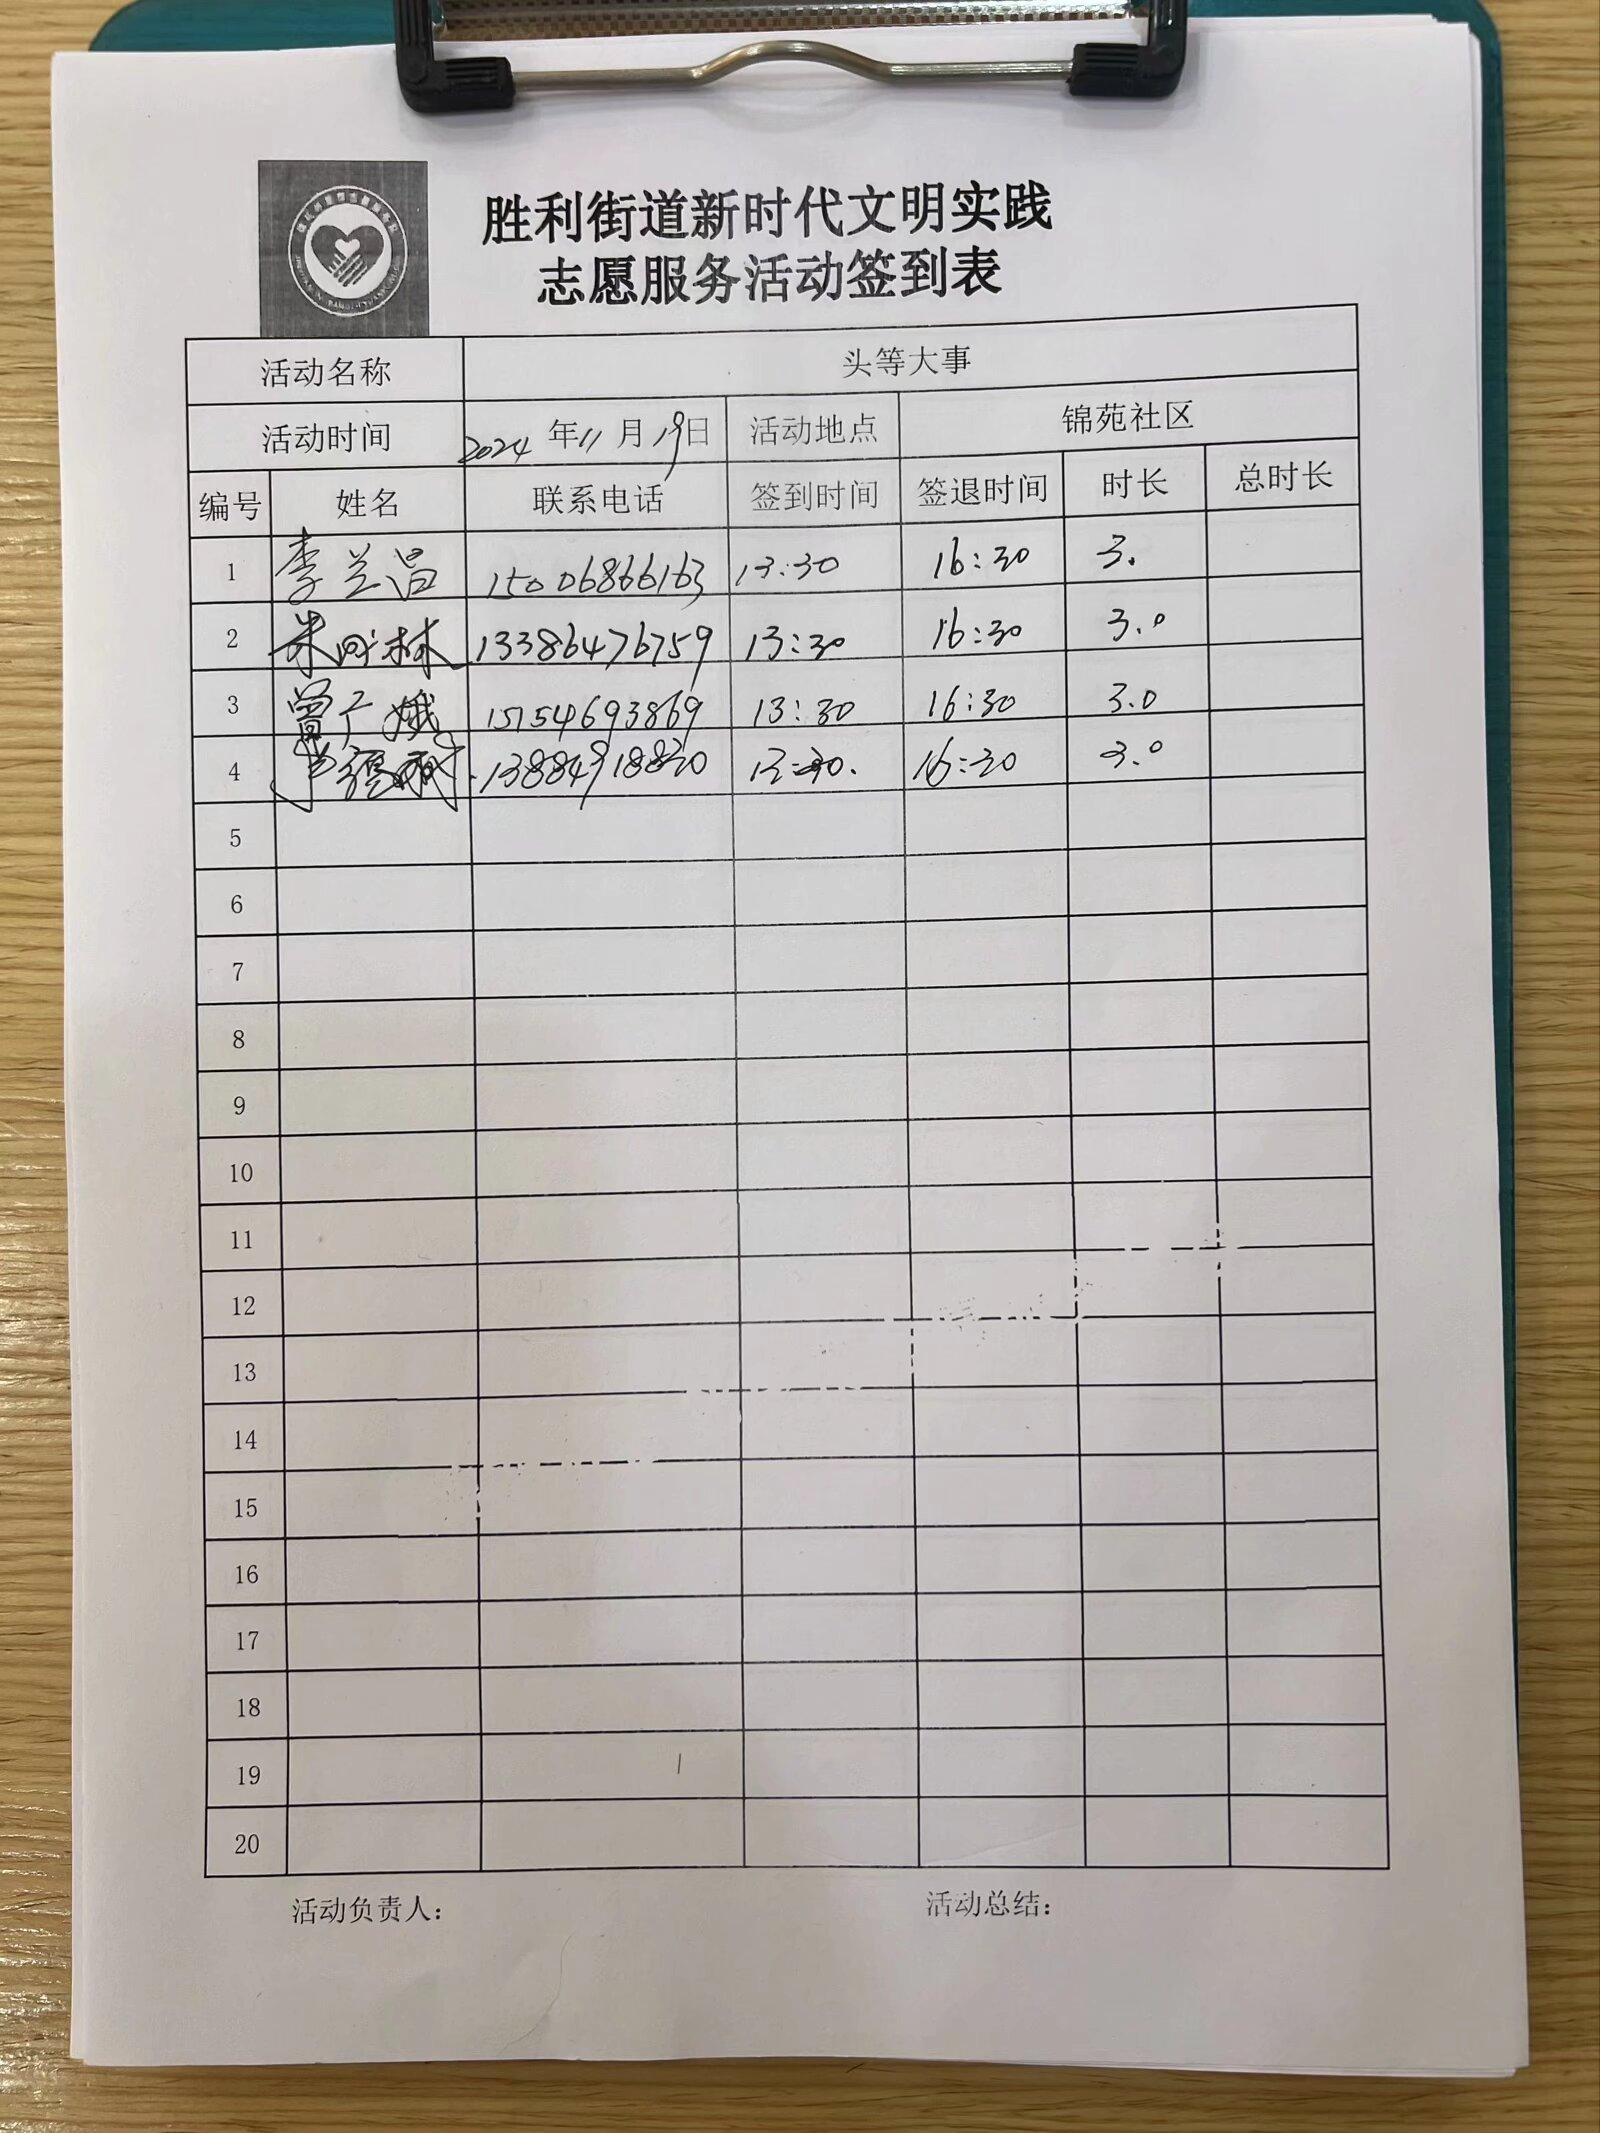 胜利街道新时代文明实践
志愿服务活动签到表
活动名称 头等大事
活动时间 2024年11月19日 活动地点 锦苑社区
编号 姓名 联系电话 签到时间 签退时间 时长 总时长
1 李兰昌 15006866163 13:30 16:30 3.
2 林 13386476759 13:30 16:30 3.0
3 曾广娥 15754693869 13:30 16:30 3.0
4 16:30 3.0
5
6
7
8
9
10
11
12
13
14
15
16
17
18
19
20
活动负责人： 活动总结：